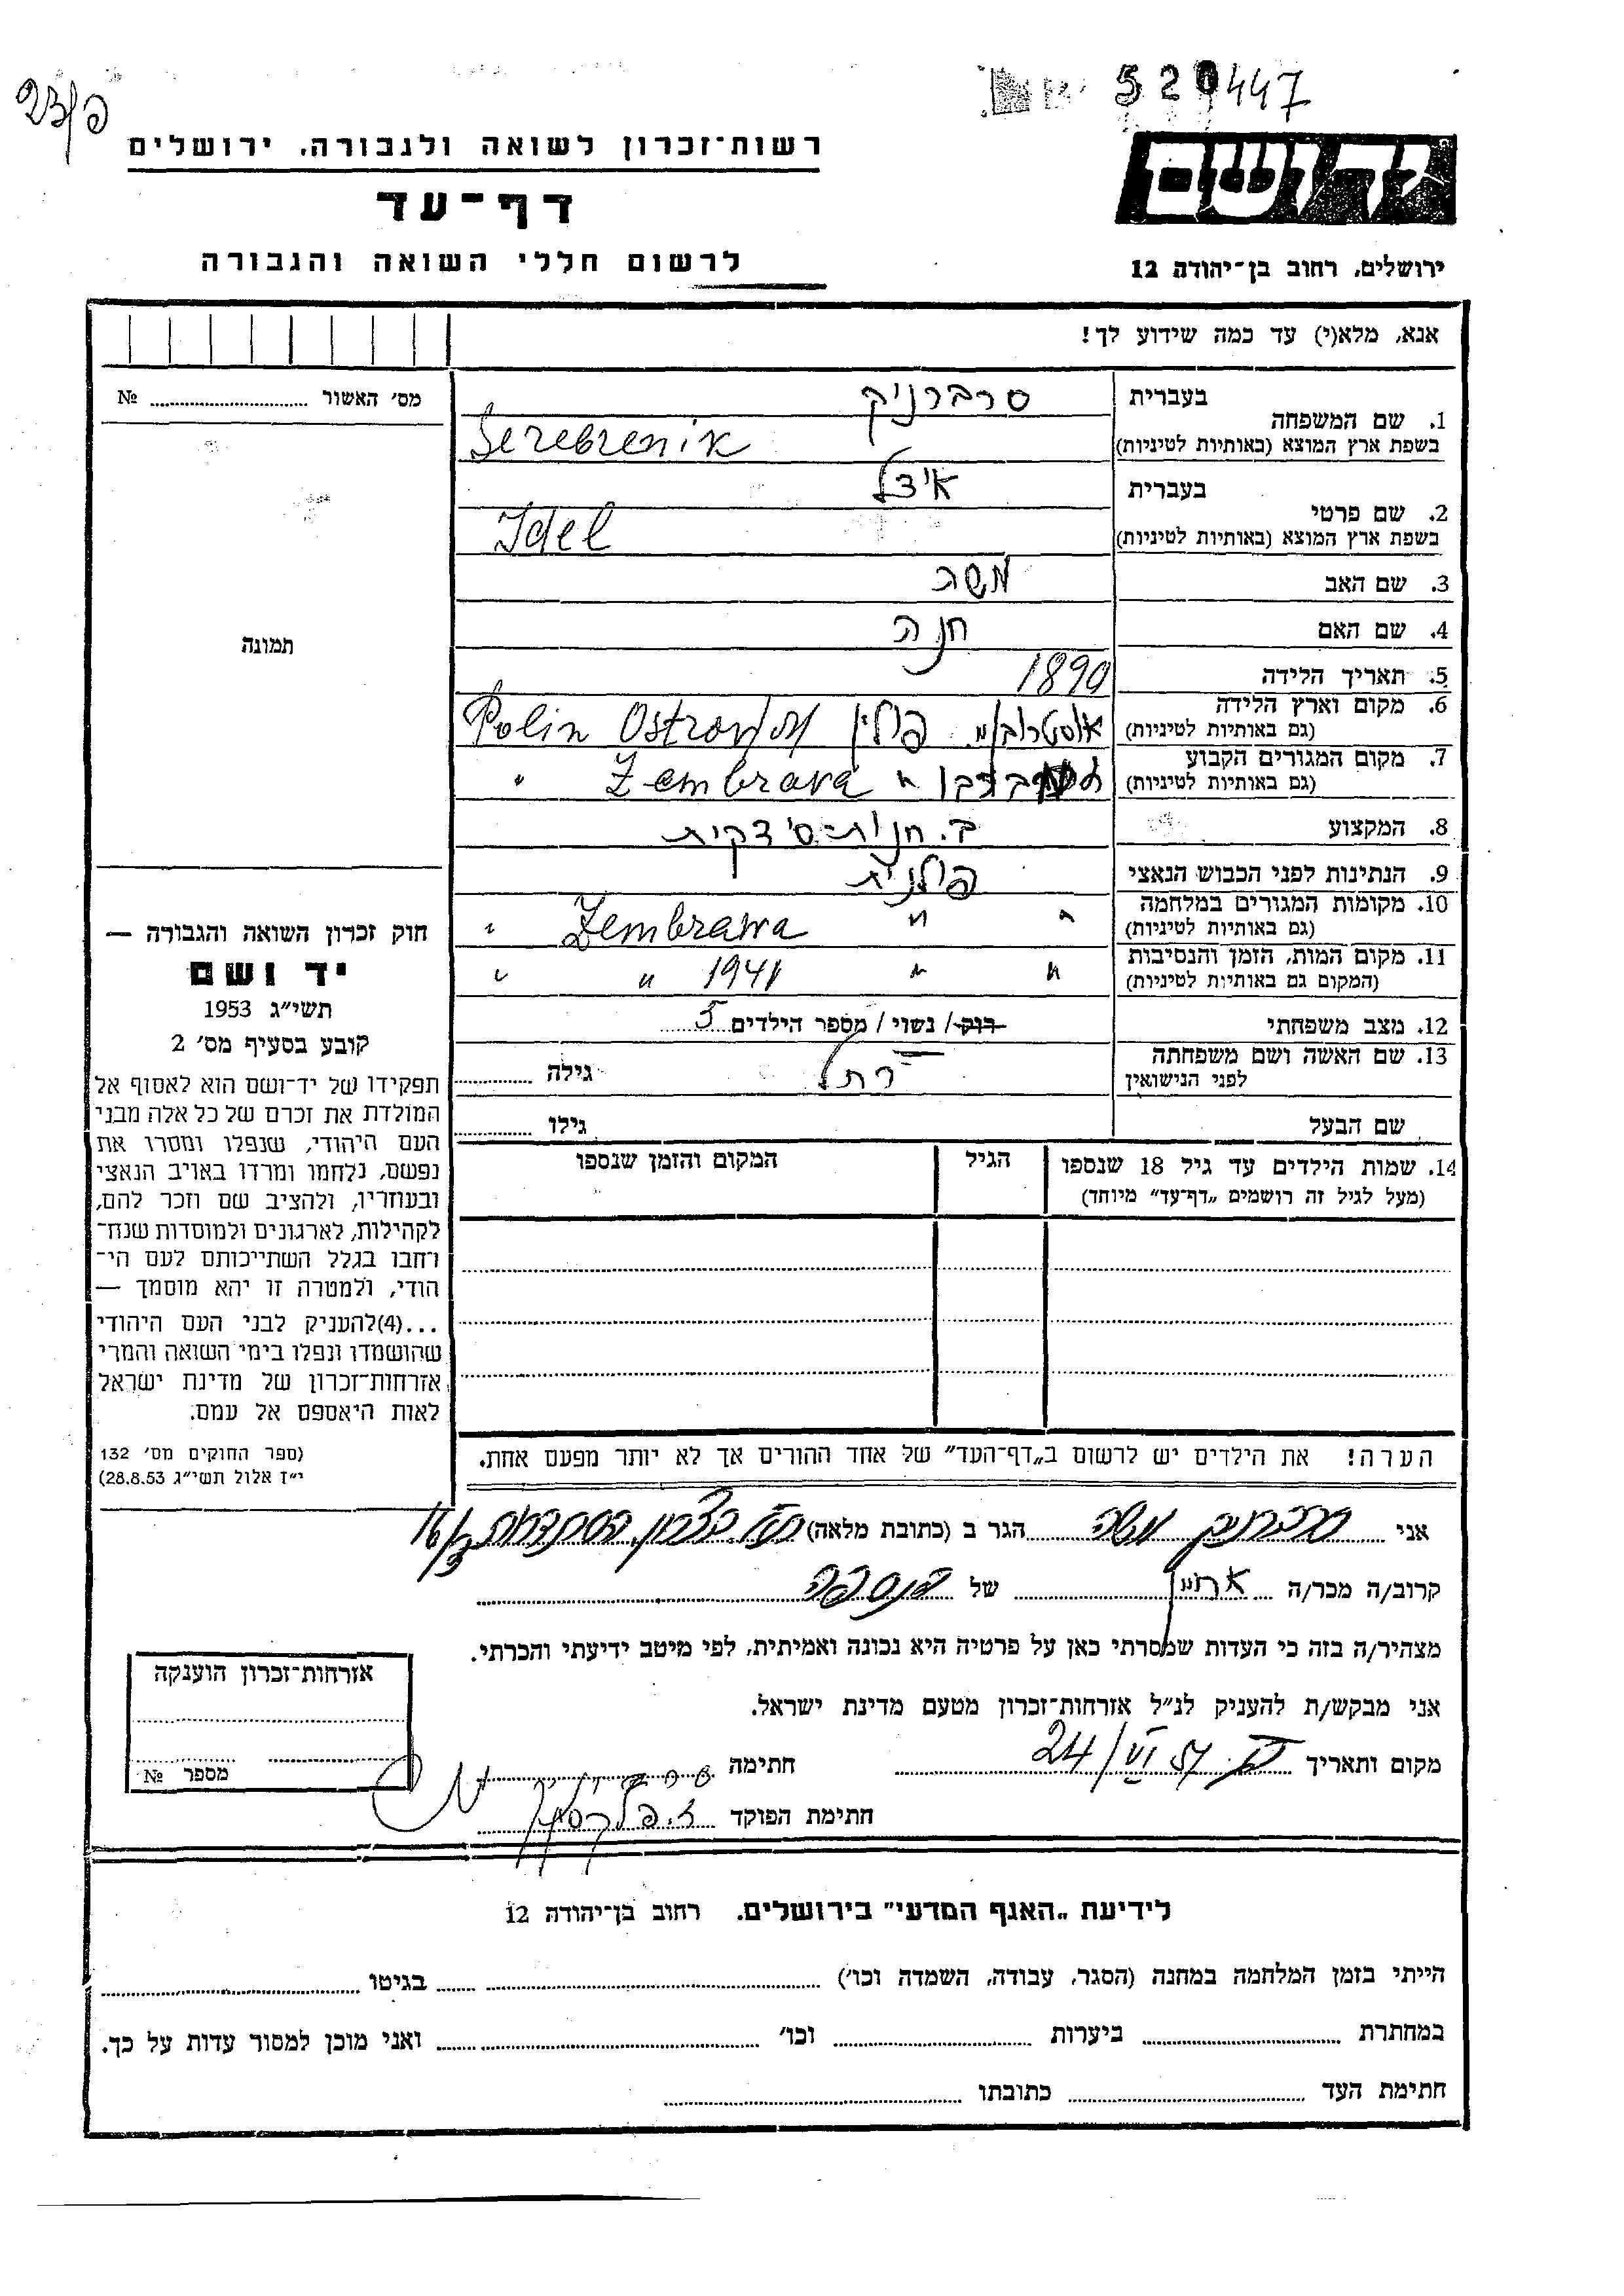 520447
23/פ
רשות־זכרון לשואה ולגבורה, ירושלים
דף־עד
לרשום חללי השואה והגבורה
יד ושם
ירושלים, רחוב בן־יהודה 12
אנא, מלא(י) עד כמה שידוע לך!
מס׳ האשור № ........
תמונה
1. שם המשפחה
בעברית סרברניק
בשפת ארץ המוצא (באותיות לטיניות) Serebrenik
2. שם פרטי
בעברית אידל
בשפת ארץ המוצא (באותיות לטיניות) Idel
3. שם האב משה
4. שם האם חנה
5. תאריך הלידה 1890
6. מקום וארץ הלידה
(גם באותיות לטיניות) פולין Polin Ostrov/M
7. מקום המגורים הקבוע
(גם באותיות לטיניות) " Zembrava "
8. המקצוע ב. חנות-סידקית
9. הנתינות לפני הכבוש הנאצי פולנית
10. מקומות המגורים במלחמה
(גם באותיות לטיניות) " " Zembrawa "
11. מקום המות, הזמן והנסיבות
(המקום גם באותיות לטיניות) " " 1941 " "
12. מצב משפחתי רוק / נשוי / מספר הילדים 5
13. שם האשה ושם משפחתה
לפני הנישואין רחל גילה ........
שם הבעל גילו ........
14. שמות הילדים עד גיל 18 שנספו הגיל המקום והזמן שנספו
(מעל לגיל זה רושמים „דף־עד״ מיוחד)
חוק זכרון השואה והגבורה —
יד ושם
תשי״ג 1953
קובע בסעיף מס׳ 2
תפקידו של יד־ושם הוא לאסוף אל
המולדת את זכרם של כל אלה מבני
העם היהודי, שנפלו ומסרו את
נפשם, נלחמו ומרדו באויב הנאצי
ובעוזריו, ולהציב שם וזכר להם,
לקהילות, לארגונים ולמוסדות שנח־
רבו בגלל השתייכותם לעם הי־
הודי, ולמטרה זו יהא מוסמך —
...(4)להעניק לבני העם היהודי
שהושמדו ונפלו בימי השואה והמרי
אזרחות־זכרון של מדינת ישראל
לאות היאספם אל עמם.
(ספר החוקים מס׳ 132
י״ז אלול תשי״ג 28.8.53)
הערה! את הילדים יש לרשום ב„דף־העד״ של אחד ההורים אך לא יותר מפעם אחת.
אני סרברניק משה הגר ב (כתובת מלאה)
קרוב/ה מכר/ה אחיין של הנספה
מצהיר/ה בזה כי העדות שמסרתי כאן על פרטיה היא נכונה ואמיתית, לפי מיטב ידיעתי והכרתי.
אני מבקש/ת להעניק לנ״ל אזרחות־זכרון מטעם מדינת ישראל.
מקום ותאריך 24/VI 57 חתימה סרברניק
חתימת הפוקד
אזרחות־זכרון הוענקה
מספר №
לידיעת „האגף המדעי״ בירושלים. רחוב בן־יהודה 12
הייתי בזמן המלחמה במחנה (הסגר, עבודה, השמדה וכו׳) ........ בגיטו ........
במחתרת ........ ביערות ........ וכו׳ ........ ואני מוכן למסור עדות על כך.
חתימת העד ........ כתובתו ........